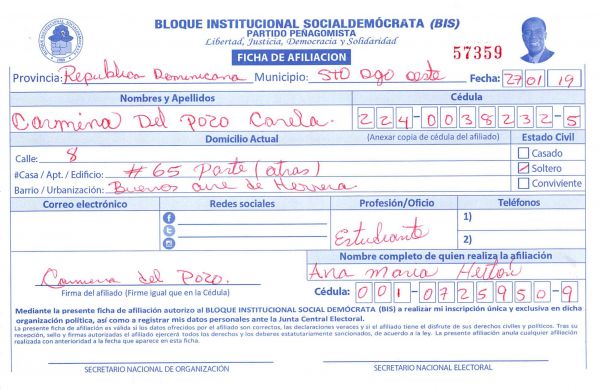 BLOQUE INSTITUCIONAL SOCIALDEMÓCRATA (BIS)
PARTIDO PEÑAGOMISTA
Libertad, Justicia, Democracia y Solidaridad
FICHA DE AFILIACION
57359
Provincia: Republica Dominicana Municipio: Sto Dgo oeste Fecha: 27 01 19
Nombres y Apellidos Cédula
Carmina Del Pozo Carela. 224-0038232-5
Domicilio Actual (Anexar copia de cédula del afiliado) Estado Civil
Calle: 8
Casado
#Casa / Apt. / Edificio: #65 Parte (atras)
Soltero
Barrio / Urbanización: Buenos aire de Herrera
Conviviente
Correo electrónico Redes sociales Profesión/Oficio Teléfonos
1)
Estudiante
2)
Nombre completo de quien realiza la afiliación
Carmina del Pozo. Ana Maria
Firma del afiliado (Firme igual que en la Cédula) Cédula: 001-0725950-9
Mediante la presente ficha de afiliación autorizo al BLOQUE INSTITUCIONAL SOCIAL DEMÓCRATA (BIS) a realizar mi inscripción única y exclusiva en dicha
organización política, así como a registrar mis datos personales ante la Junta Central Electoral.
La presente ficha de afiliación es válida si los datos ofrecidos por el afiliado son correctos, las declaraciones veraces y si el afiliado tiene el disfrute de sus derechos civiles y políticos. Tras su
recepción, sello y firmas autorizadas el afiliado ejercerá todos los derechos y los deberes estatutariamente sancionados, de acuerdo a la ley. La presente afiliación anula cualquier afiliación
realizada con anterioridad a la fecha que aparece en esta ficha.
SECRETARIO NACIONAL DE ORGANIZACIÓN SECRETARIO NACIONAL ELECTORAL